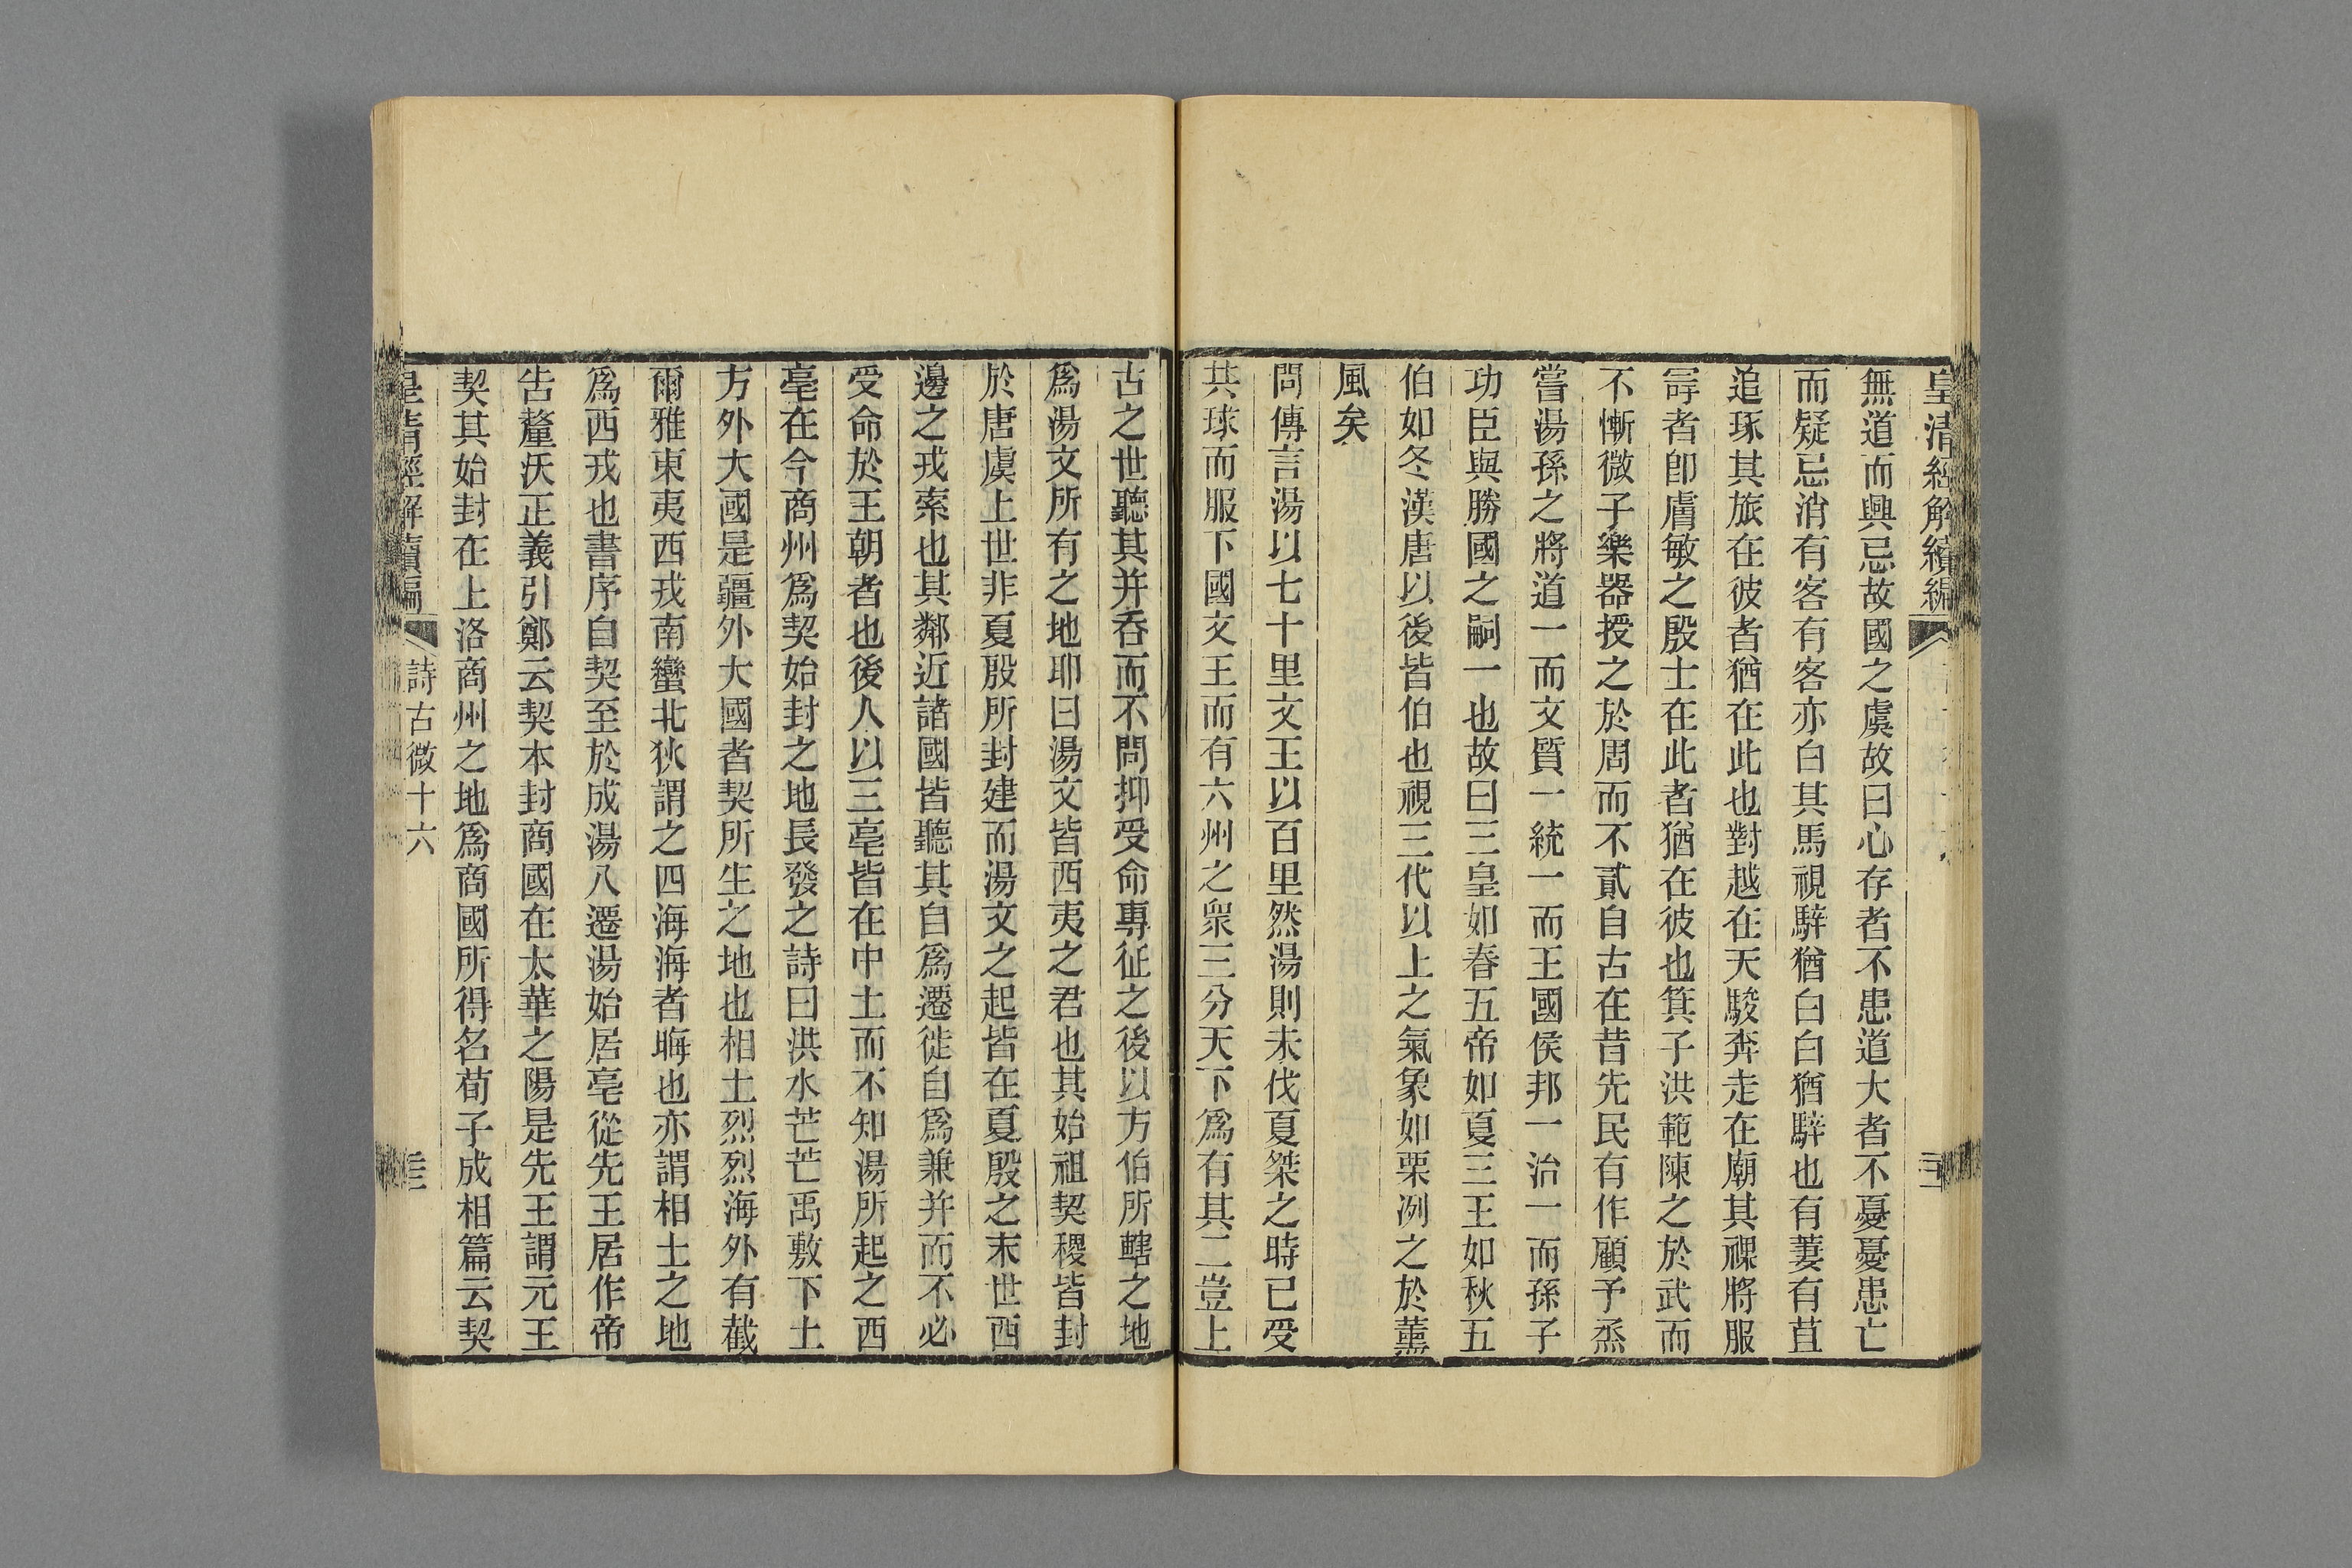 皇清經解續編
無道而興忌故國之虞故曰心存者不患道大者不憂憂患亡
而疑忌消有客有客亦白其馬視騂猶白白猶騂也有萋有苴
追琢其旅在彼者猶在此也對越在天駿奔走在廟其祼將服
冔者卽膚敏之殷士在此者猶在彼也箕子洪範陳之於武而
不慚微子樂器授之於周而不貳自古在昔先民有作顧予烝
嘗湯孫之將道一而文質一統一而王國侯邦一治一而孫子
功臣與勝國之嗣一也故曰三皇如春五帝如夏三王如秋五
伯如冬漢唐以後皆伯也視三代以上之氣象如栗冽之於薰
風矣
問傳言湯以七十里文王以百里然湯則未伐夏桀之時已受
共球而服下國文王而有六州之衆三分天下爲有其二豈上
古之世聽其并吞而不問抑受命專征之後以方伯所轄之地
爲湯文所有之地耶曰湯文皆西夷之君也其始祖契稷皆封
於唐虞上世非夏殷所封建而湯文之起皆在夏殷之末世西
邊之戎索也其鄰近諸國皆聽其自爲遷徙自爲兼并而不必
受命於王朝者也後人以三亳皆在中土而不知湯所起之西
亳在今商州爲契始封之地長發之詩曰洪水芒芒禹敷下土
方外大國是疆外大國者契所生之地也相土烈烈海外有截
爾雅東夷西戎南蠻北狄謂之四海海者晦也亦謂相土之地
爲西戎也書序自契至於成湯八遷湯始居亳從先王居作帝
告釐沃正義引鄭云契本封商國在太華之陽是先王謂元王
契其始封在上洛商州之地爲商國所得名荀子成相篇云契
皇清經解續編
詩古微十六